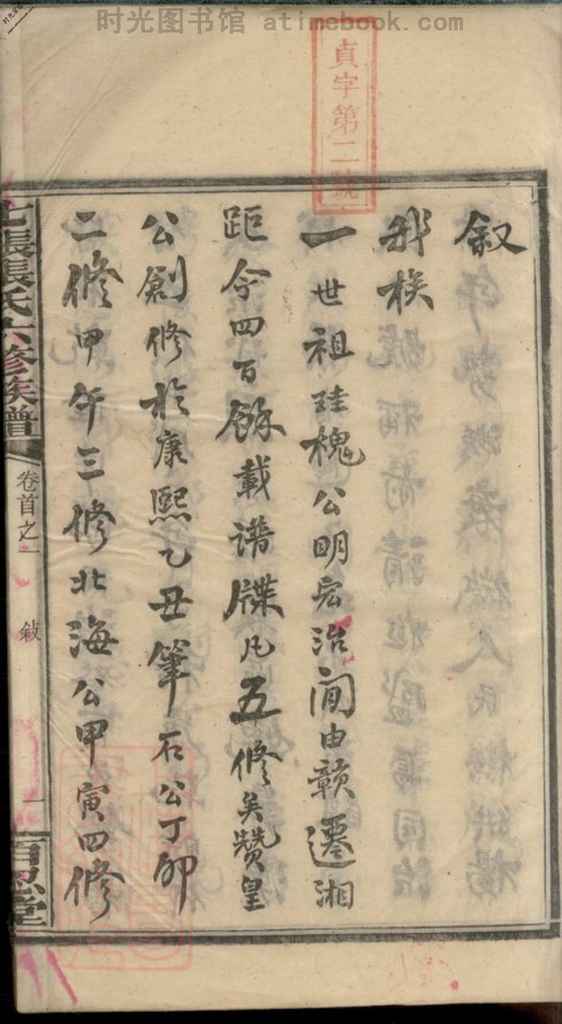 时光图书馆 atimebook.com
貞字第二號
叙
我族
一世祖珪槐公明宏治间由贛遷湘
距今四百餘載譜牒凡五修矣贊皇
公創修於康熙乙丑筆石公丁卯
二修甲午三修北海公甲寅四修
張氏六修族譜
卷首之一
敍
一
百忍堂